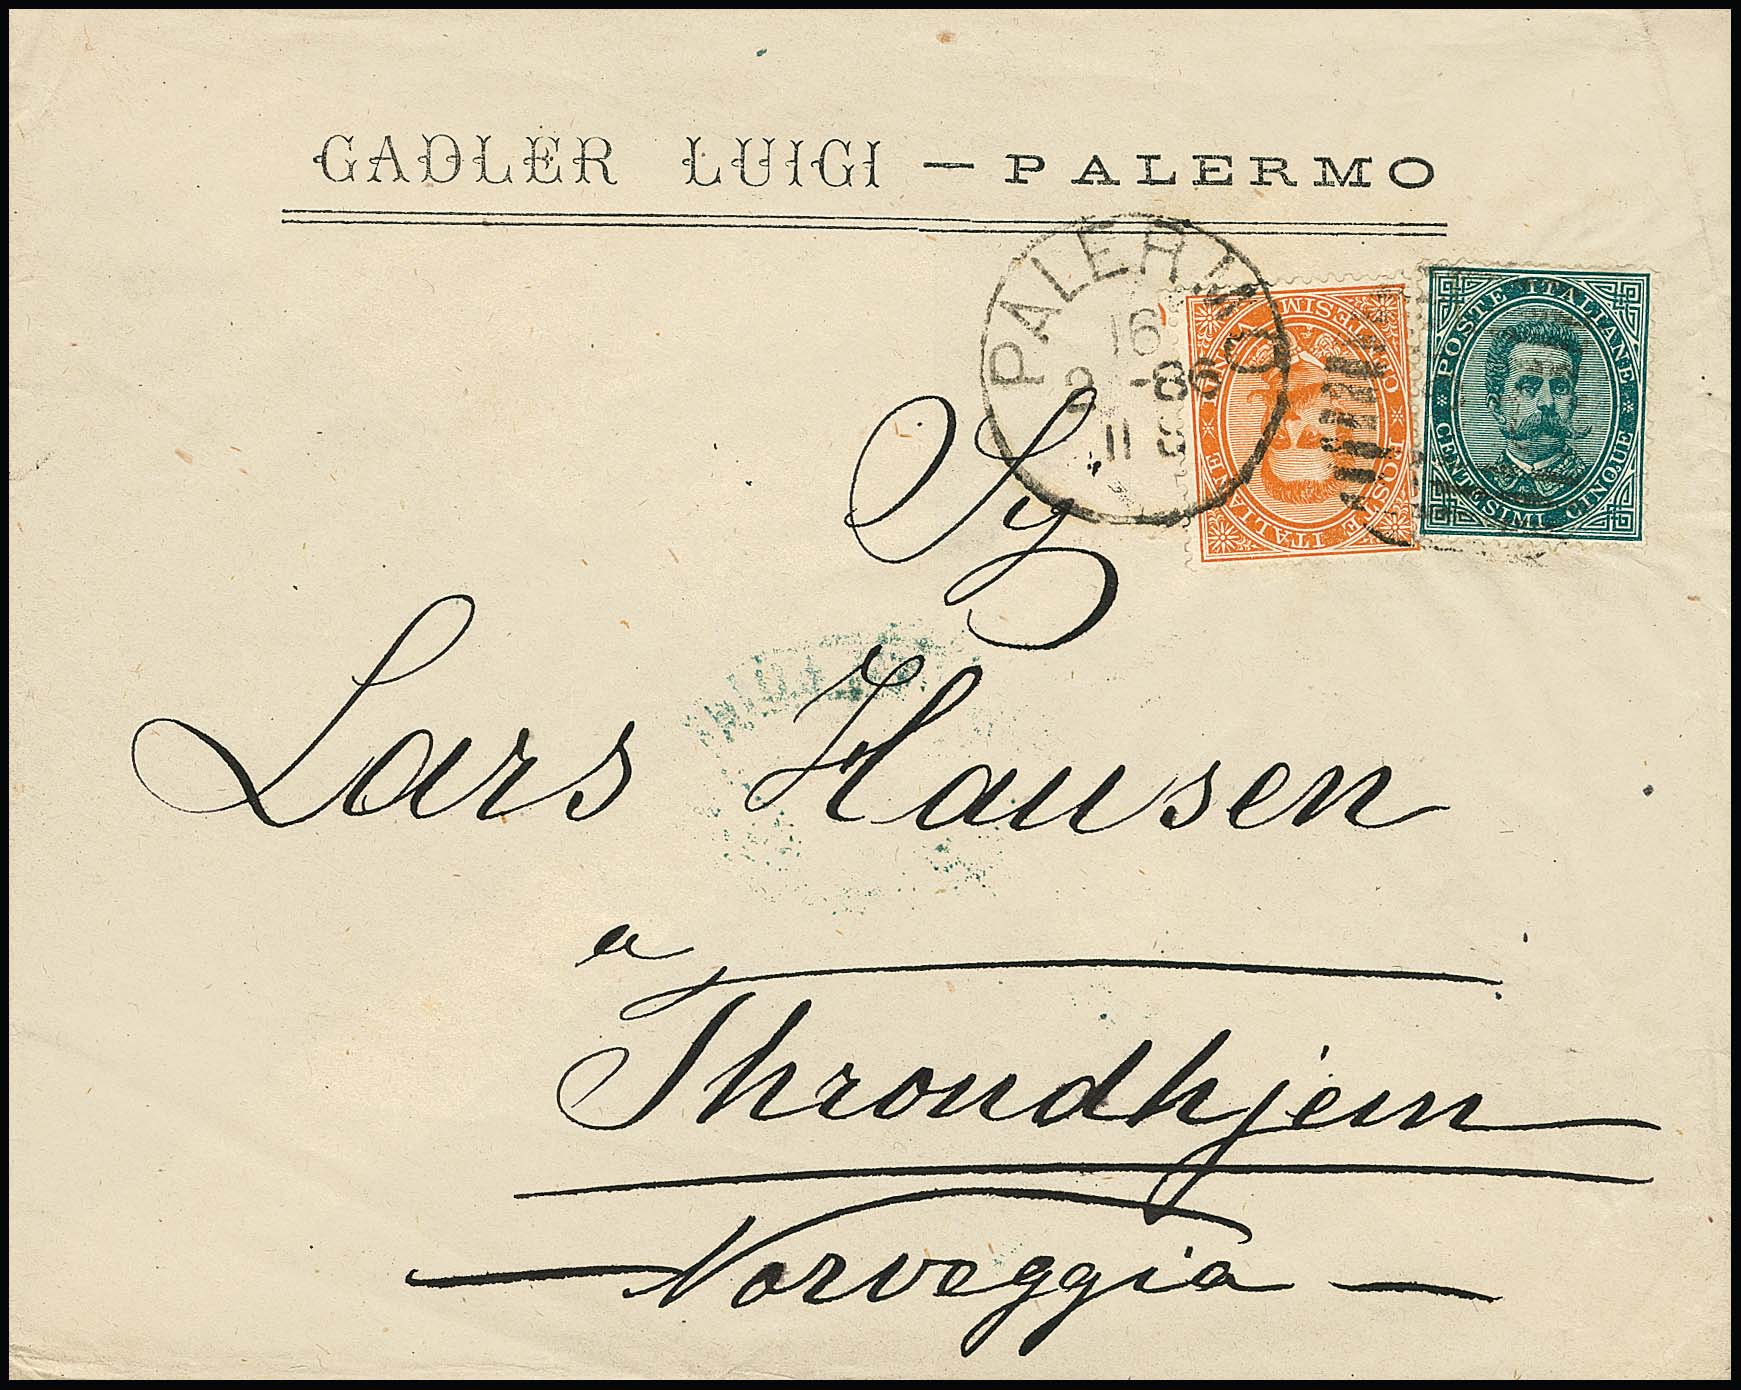 GADLER LUIGI — PALERMO
PALERMO
16
2 -86
11 S
POSTE ITALIANE
CENTESIMI VENTI
POSTE ITALIANE
CENTESIMI CINQUE
Sig
Lars Hansen
a
Throndhjem
Norveggia